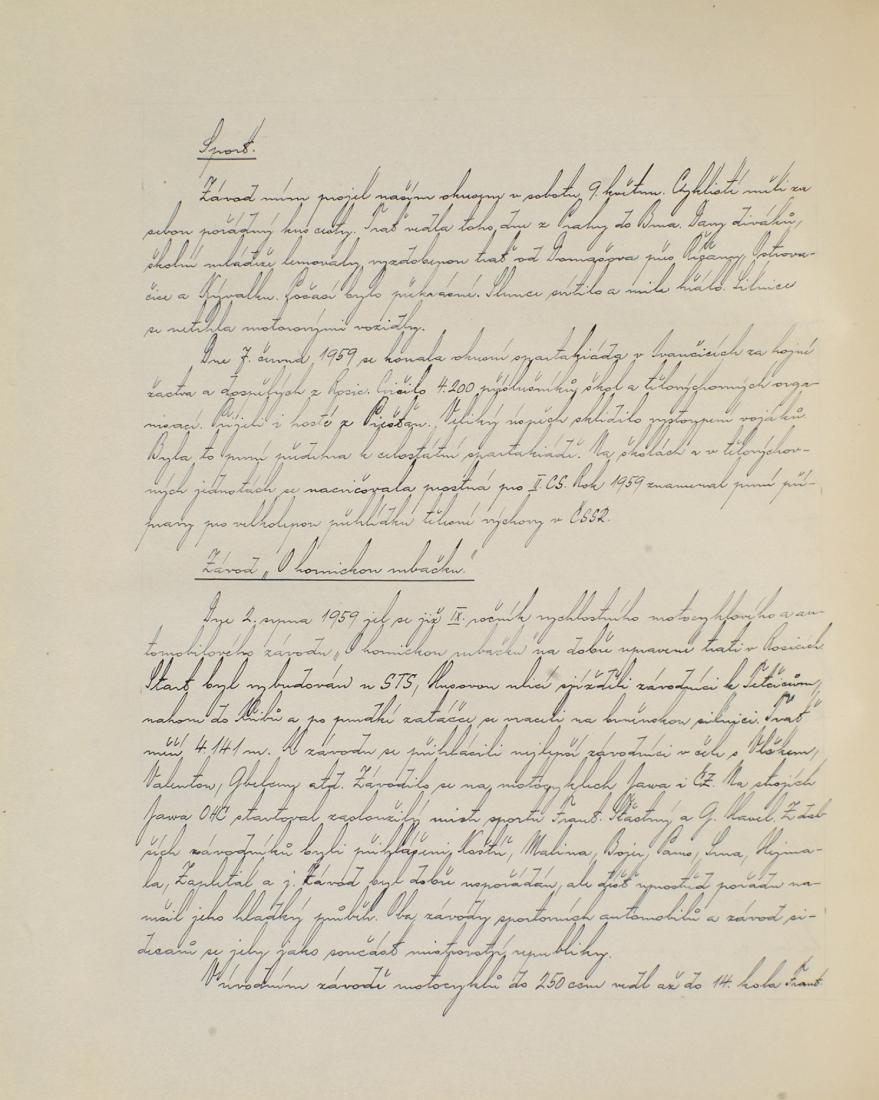 Sport.
Závod míru projel naším okresem v sobotu 9. květnu. Cyklisté měli za
sebou pořádný kus cesty. Trať vedla toho dne z Prahy do Brna. Davy diváků,
školní mládeže lemovaly vyzdobenou trať od Domašova přes Říčany, Ostrova-
čice a Kývalku. Počasí bylo překrásné. Slunce svítilo a mile hřálo. Silnice
se netrhla motorovými vozidly.
Dne 7. června 1959 se konala okresní spartakiáda v Ivančicích za hojné
žactva a dospělých z Rosic. Cvičilo 4.200 příslušníků škol a tělovýchovných orga-
nisací. Přijeli i hosté z Piešťan. Veliký úspěch sklidilo vystoupení vojáků.
Byla to první předehra k celostátní spartakiádě. Na školách a v tělových-
ných jednotách se nacvičovala prostná pro II. CS. Rok 1959 znamenal první pří-
pravy pro velkolepou přehlídku tělesné výchovy v ČSSR.
Závod „O hornickou mbačku."
Dne 2. srpna 1959 jel se již IX. ročník rychlostního motocyklového a au-
tomobilového závodu „O hornickou mbačku na dobře upravené trati v Rosicích.
Start byl vybudován u STS, Husovou ulicí sjížděli závodníci k Tetčicům,
nahoru do Křibů a po prudké zatáčce se vraceli na brněnskou silnici. Trať
měří 4.141 m. K závodu se přihlásili nejlepší závodníci v čele s Vlčkem,
Valentou, atd. Závodilo se na motocyklech Jawa i ČZ. Na strojích
Jawa OHC startoval zasloužilý mistr sportu Frant. Šťastný a G. Havel. Z dal-
ších závodníků byli přihlášeni, Kostiř, Malina, Bojer, Parus, Srna, Hejma-
la, Zapletal a j. Závod byl dobře uspořádán, ale déšť uprostřed pořadu na-
rušil jeho hladký průběh. Oba závody sportovních automobilů a závod si-
decarů se jely jako součást mistrovství republiky.
V úvodním závodě motocyklů do 250 ccm vedl až do 14. kola Frant.